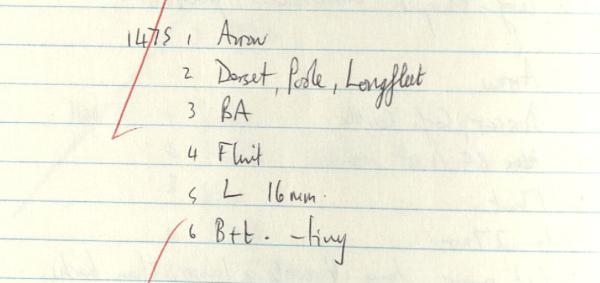 1475 1 Arrow
2 Dorset, Poole, Longfleet
3 BA
4 Flint
5 L 16mm.
6 B+t. - tiny